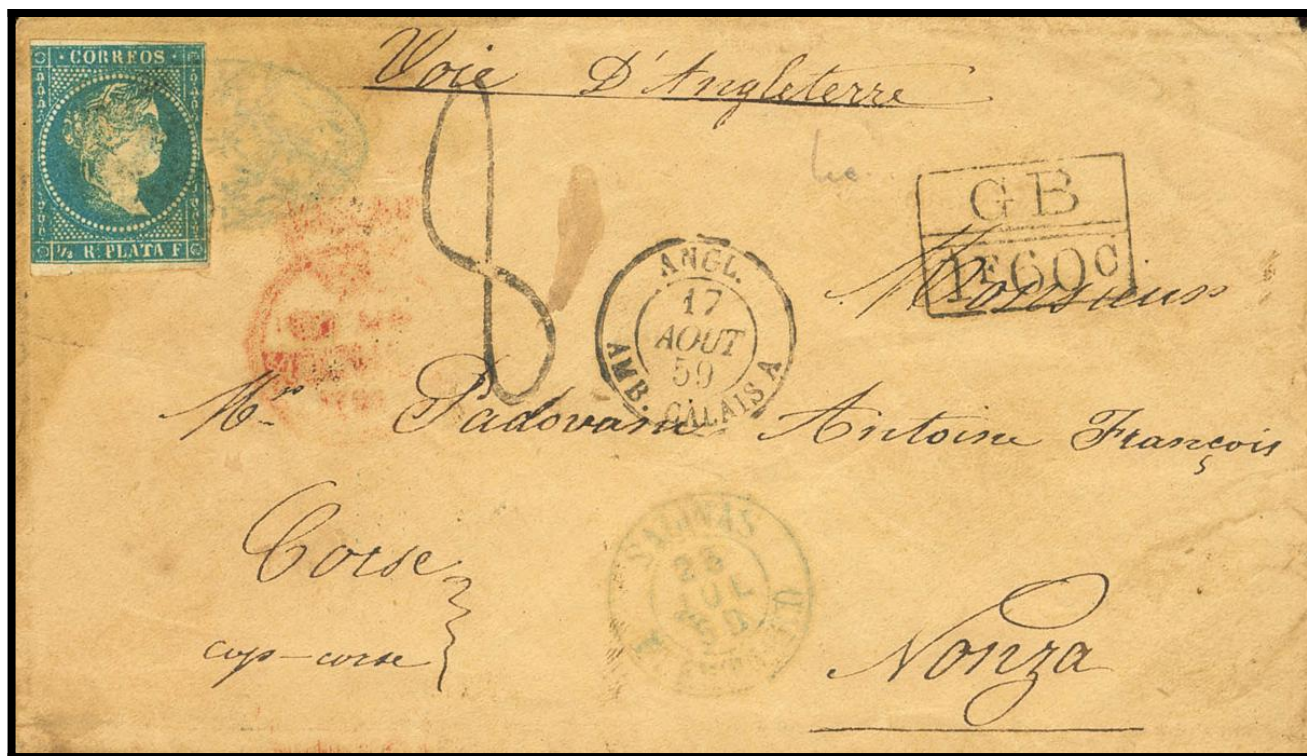 CORREOS
½ R. PLATA F
Voie D'Angleterre
8
GB
1F60C
ANGL.
17
AOUT
59
AMB. CALAIS A
Monsieur
Mr Padovani Antoine François
Corse
cap-corse
SALINAS
JUL
Nonza